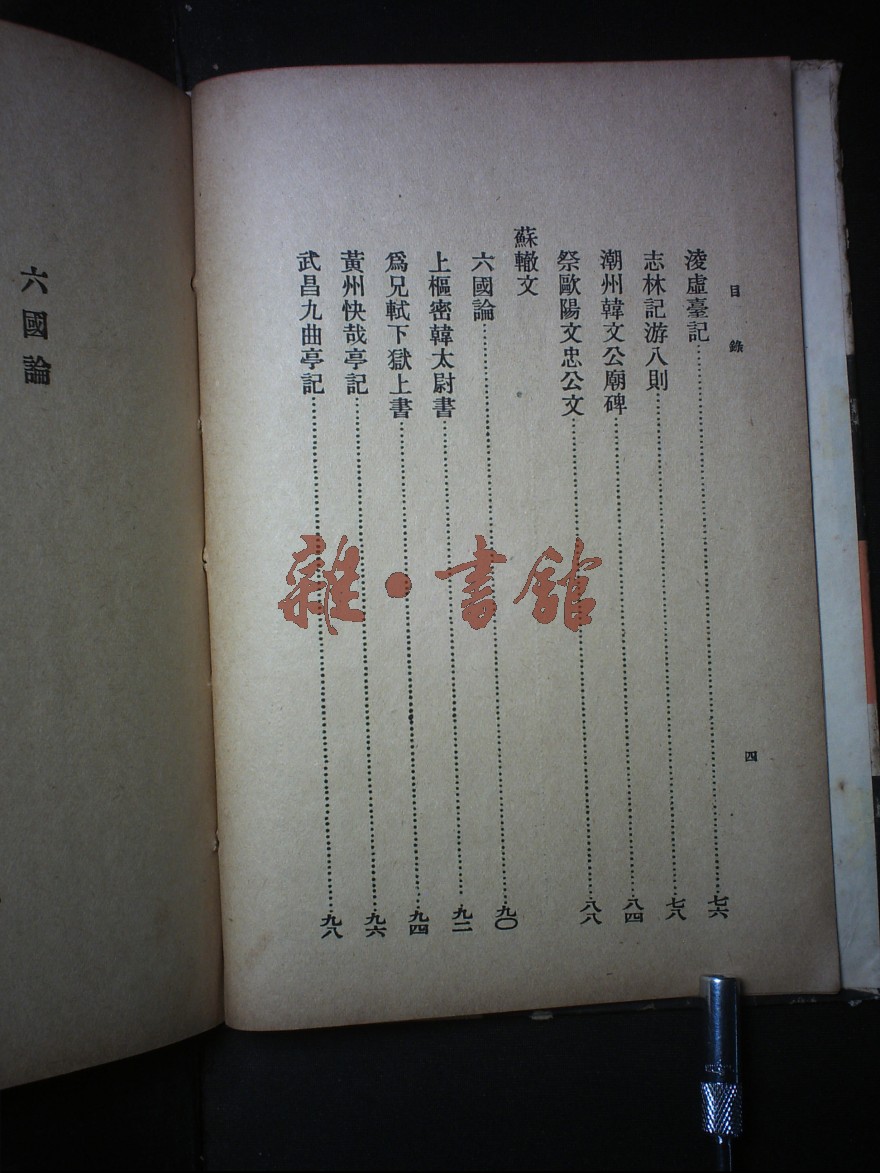 目錄
四
淩虛臺記……七六
志林記游八則……七八
潮州韓文公廟碑……八四
祭歐陽文忠公文……八八
蘇轍文
六國論……九〇
上樞密韓太尉書……九二
爲兄軾下獄上書……九四
黃州快哉亭記……九六
武昌九曲亭記……九八
六國論
雜·書館